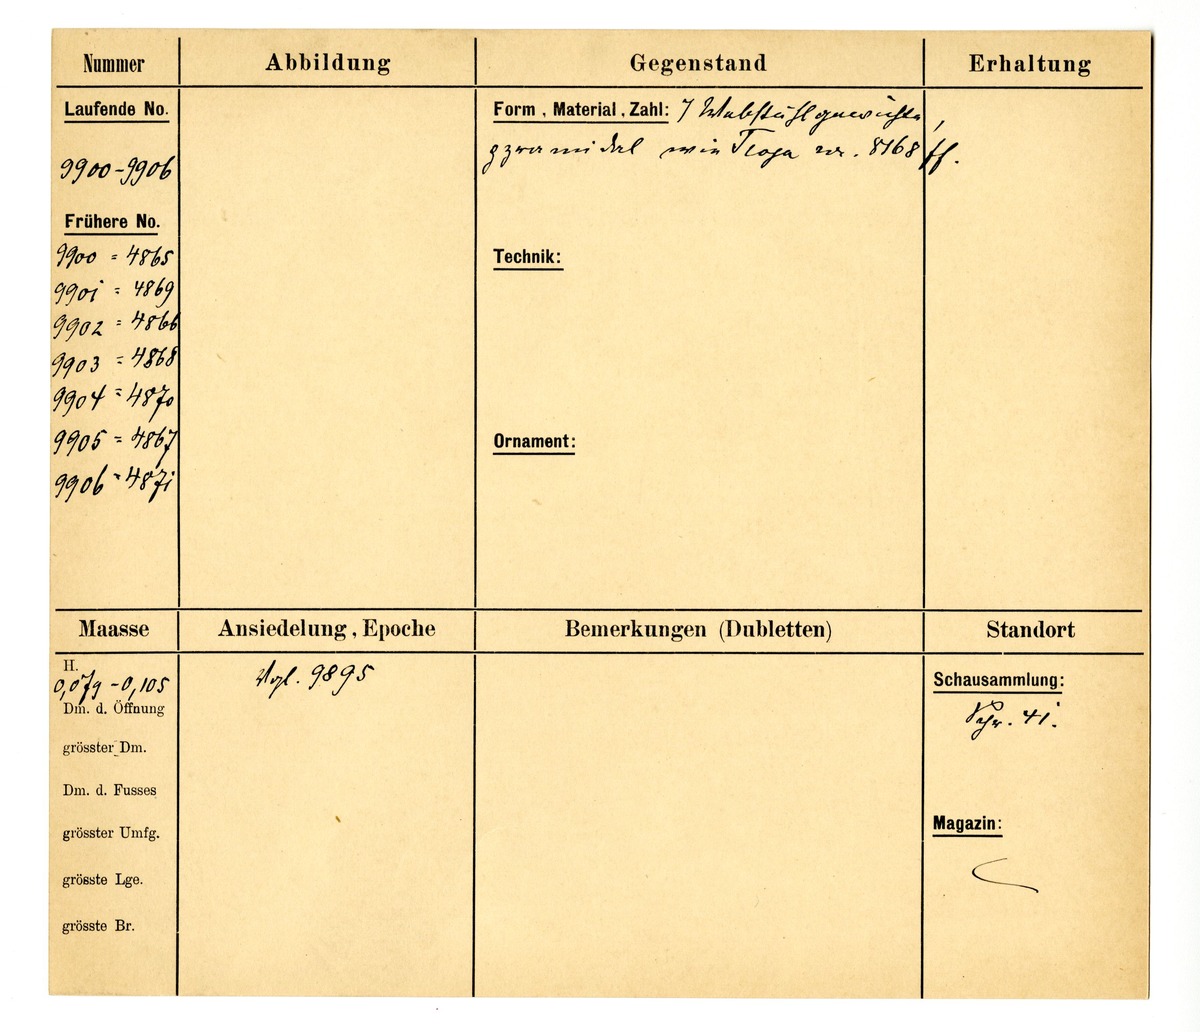 Nummer
Abbildung
Gegenstand
Erhaltung
Laufende No.
9900-9906
Frühere No.
9900 = 4865
9901 = 4869
9902 = 4866
9903 = 4868
9904 = 4870
9905 = 4867
9906 = 4871
Form, Material, Zahl: 7 Webstuhlgewichte,
pyramidal wie Troja nr. 8168 ff.
Technik:
Ornament:
Maasse
Ansiedelung, Epoche
Bemerkungen (Dubletten)
Standort
H.
0,079 - 0,105
Dm. d. Öffnung
grösster Dm.
Dm. d. Fusses
grösster Umfg.
grösste Lge.
grösste Br.
Vgl. 9895
Schausammlung:
Schr. 41.
Magazin: